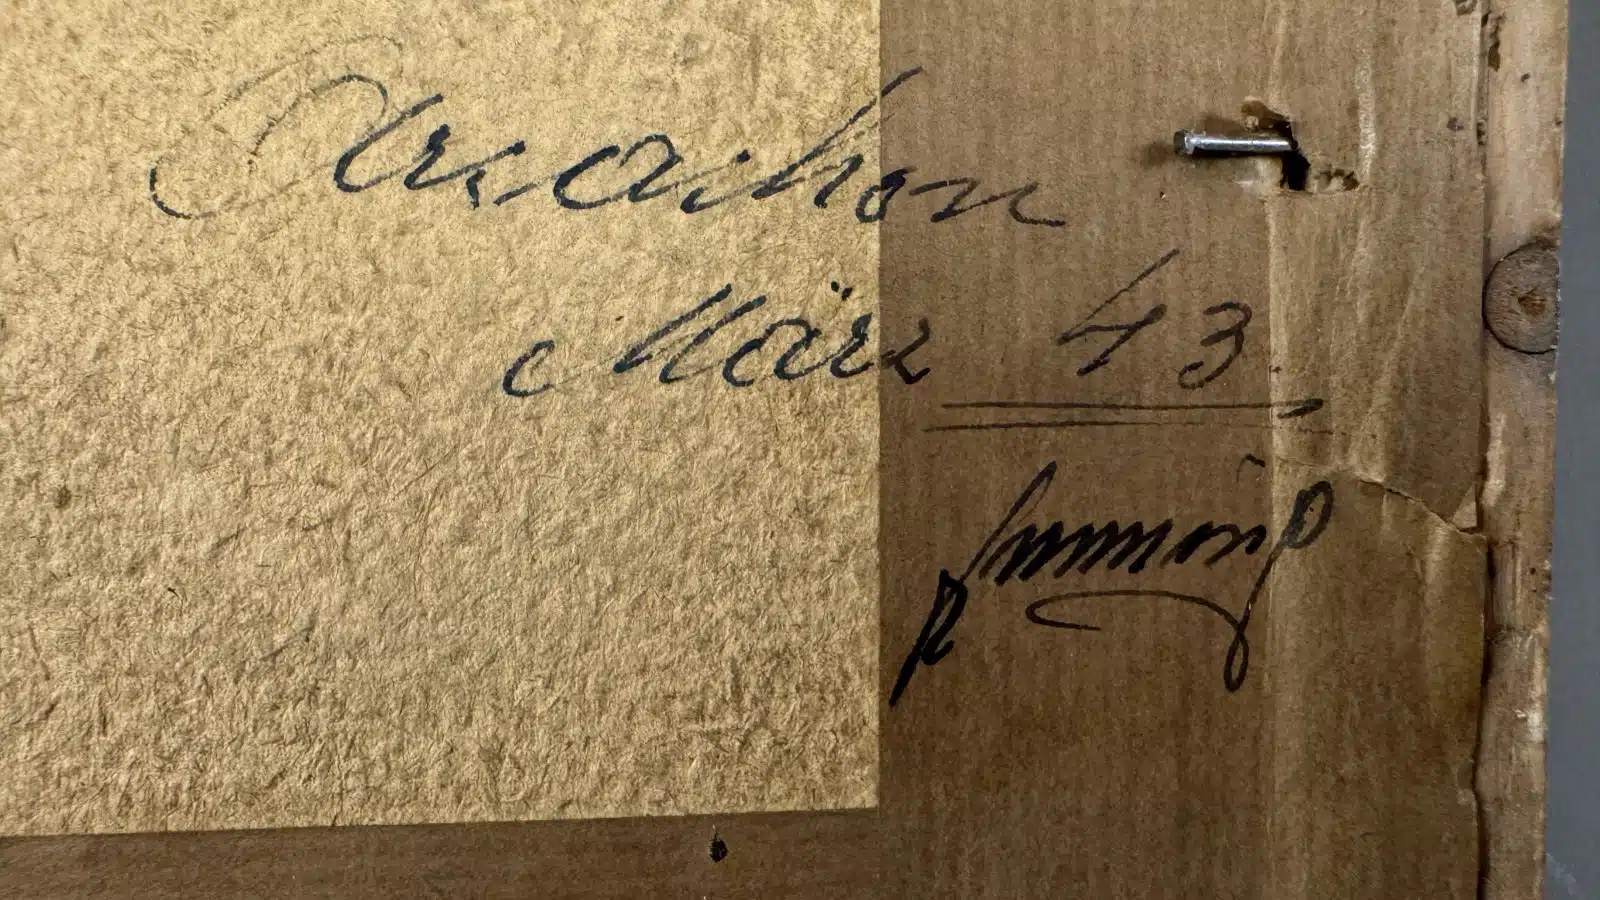 Arcachon
März 43